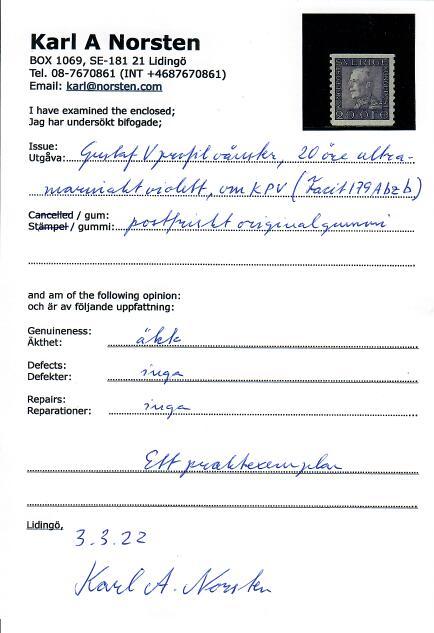 Karl A Norsten
BOX 1069, SE-181 21 Lidingö
Tel. 08-7670861 (INT +4687670861)
Email: karl@norsten.com
SVERIGE
20 ÖRE
I have examined the enclosed;
Jag har undersökt bifogade;
Issue:
Utgåva: Gustaf V profil vänster, 20 öre ultra-
marinakt violett, vm KPV (Facit 179Abzb)
Cancelled / gum:
Stämpel / gummi: postfriskt originalgummi
and am of the following opinion:
och är av följande uppfattning:
Genuineness:
Äkthet: äkk
Defects:
Defekter: inga
Repairs:
Reparationer: inga
Ett praktexemplar
Lidingö,
3.3.22
Karl A. Norsten